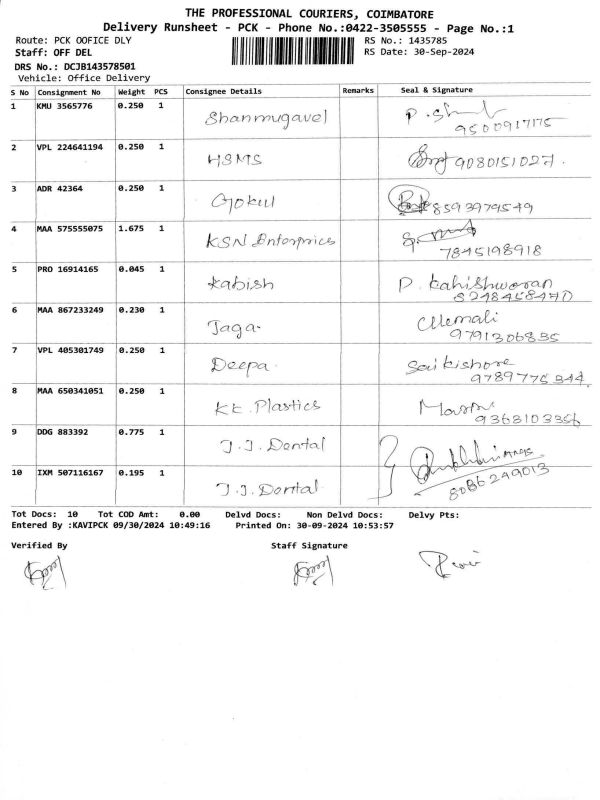 THE PROFESSIONAL COURIERS, COIMBATORE
Delivery Runsheet - PCK - Phone No.:0422-3505555 - Page No.:1
Route: PCK OOFICE DLY
RS No.: 1435785
Staff: OFF DEL
RS Date: 30-Sep-2024
DRS No.: DCJB143578501
Vehicle: Office Delivery
S No Consignment No Weight PCS Consignee Details Remarks Seal & Signature
1 KMU 3565776 0.250 1 Shanmugavel
9500917175
2 VPL 224641194 0.250 1 HSMS 9080151027.
3 ADR 42364 0.250 1 Gokul 8593979549
4 MAA 575555075 1.675 1 KSN Enterprices
7845198918
5 PRO 16914165 0.045 1 Kabish P. Kahishwaran
8248458470
6 MAA 867233249 0.230 1 Jaga.
9791306835
7 VPL 405301749 0.250 1 Deepa. Sai kishore
9789775344
8 MAA 650341051 0.250 1 KK. Plastics
9368103356
9 DDG 883392 0.775 1 J.J. Dental
10 IXM 507116167 0.195 1 J.J. Dental 8086249013
Tot Docs: 10 Tot COD Amt: 0.00 Delvd Docs: Non Delvd Docs: Delvy Pts:
Entered By :KAVIPCK 09/30/2024 10:49:16 Printed On: 30-09-2024 10:53:57
Verified By Staff Signature